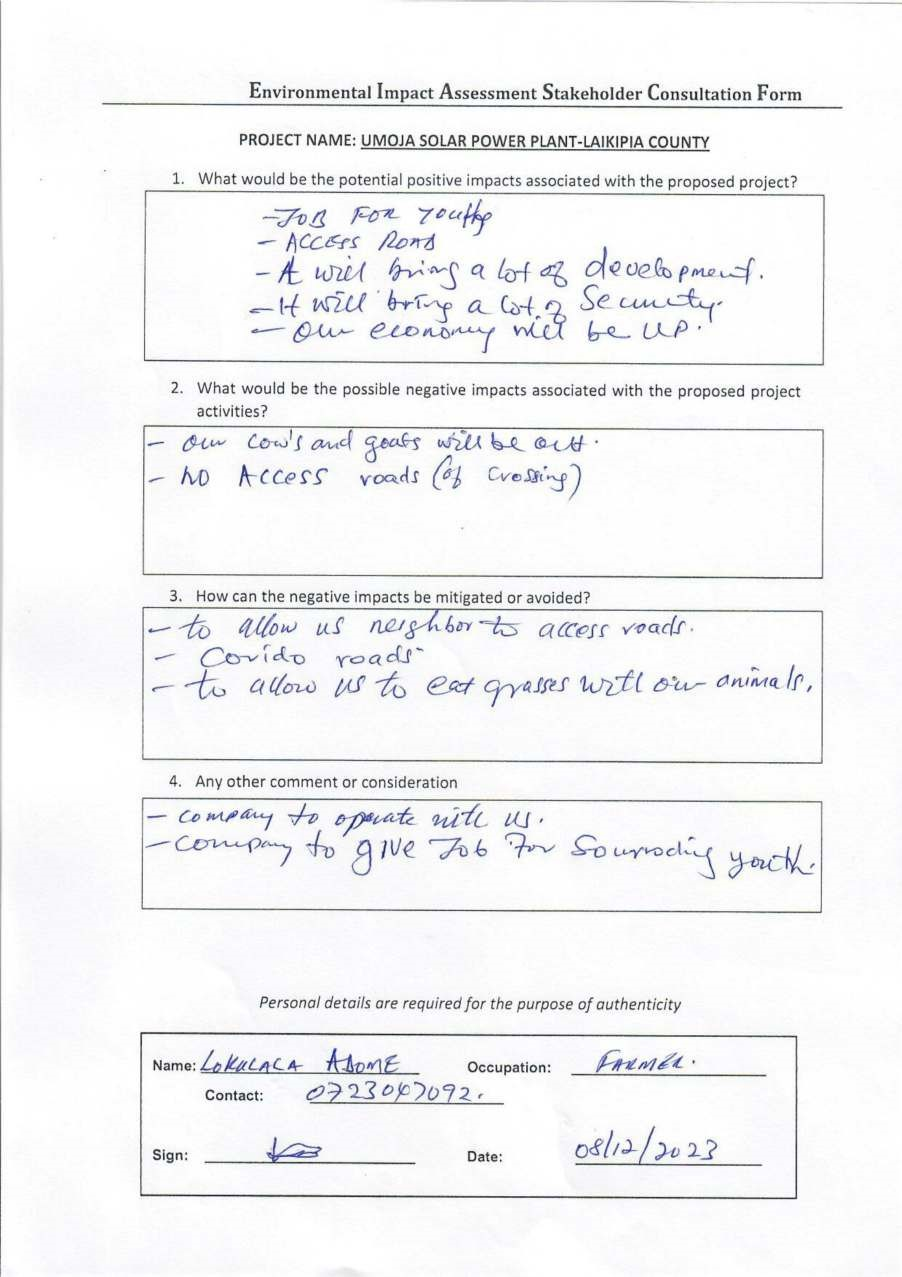 Environmental Impact Assessment Stakeholder Consultation Form
PROJECT NAME: UMOJA SOLAR POWER PLANT-LAIKIPIA COUNTY
1. What would be the potential positive impacts associated with the proposed project?
- JOB FOR Youths
- ACCESS ROAD
- A will bring a lot of development.
- It will bring a lot of Security.
- Our economy will be UP.
2. What would be the possible negative impacts associated with the proposed project
activities?
- Our Cow's and goats will be out.
- NO ACCESS roads (of Crossing)
3. How can the negative impacts be mitigated or avoided?
- to allow us neighbor to access roads.
- Corido roads
- to allow us to eat grasses with our animals.
4. Any other comment or consideration
- company to operate with us.
- company to give Job For Sourroding youth.
Personal details are required for the purpose of authenticity
Name: LOKULACA ADOME Occupation: FARMER.
Contact:
Sign: Date: 08/12/2023